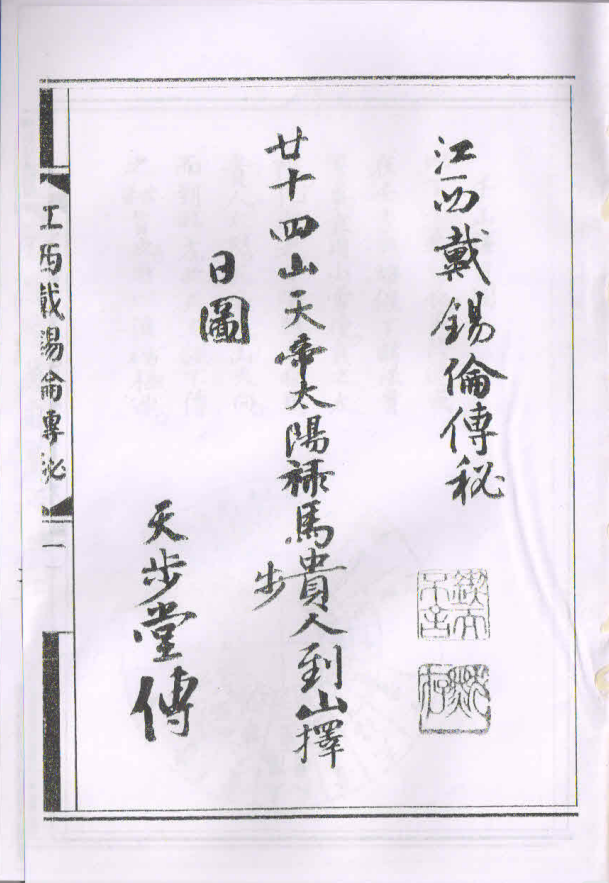 江西戴錫倫傳秘
廿十四山天帝太陽祿馬貴人到山擇
步
日圖
天步堂傳
江西戴錫倫專秘
一